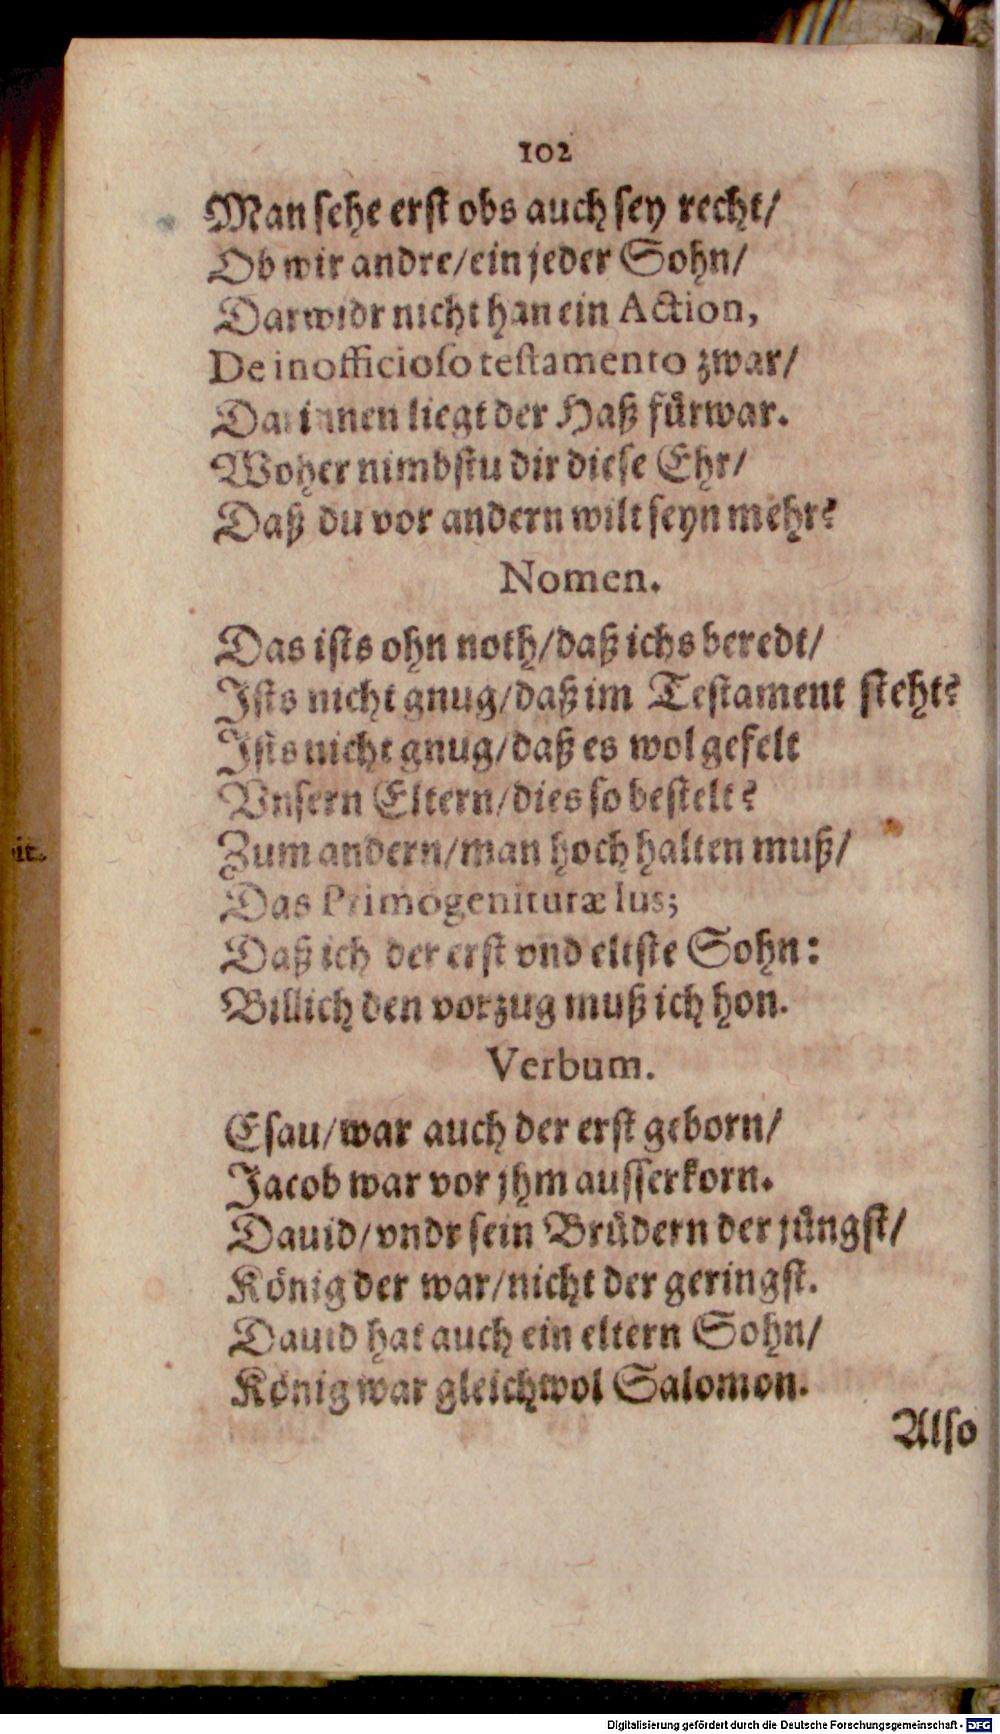 102
Man sehe erst obs auch sey recht/
Ob wir andre/ein jeder Sohn/
Darwidr nicht han ein Action,
De inofficioso testamento zwar/
Darinnen liegt der Haß fürwar.
Woher nimbstu dir diese Ehr/
Daß du vor andern wilt seyn mehr?
Nomen.
Das ists ohn noth/daß ichs beredt/
Ists nicht gnug/daß im Testament steht?
Ists nicht gnug/daß es wol gefelt
Vnsern Eltern/dies so bestelt?
Zum andern/man hoch halten muß/
Das Primogenituræ Ius;
Daß ich der erst vnd eltste Sohn:
Billich den vorzug muß ich hon.
Verbum.
Esau/war auch der erst geborn/
Jacob war vor jhm ausserkorn.
Dauid/vndr sein Brüdern der jüngst/
König der war/nicht der geringst.
Dauid hat auch ein eltern Sohn/
König war gleichwol Salomon.
Also
Digitalisierung gefördert durch die Deutsche Forschungsgemeinschaft - DFG